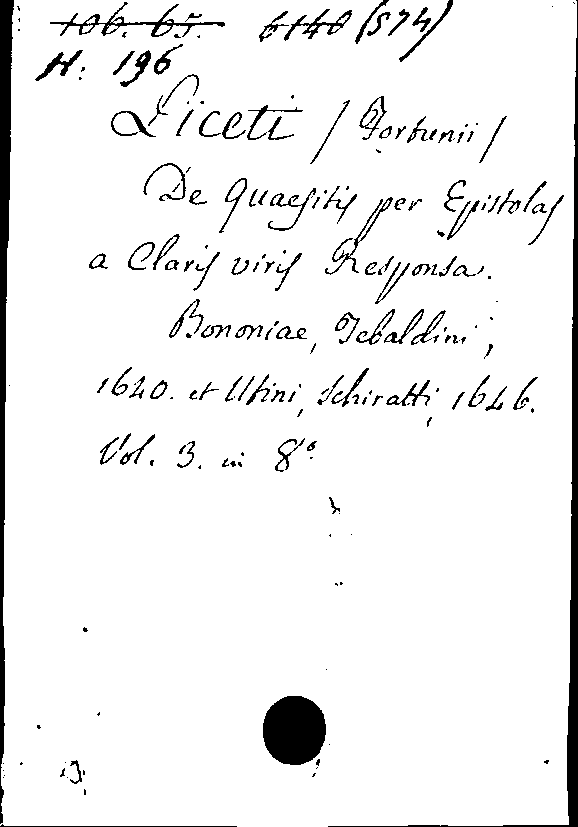 106. 65. 6140 (574)
H: 196
Liceti / Fortunii /
De Quaesitis per Epistolas
a Claris viris Responsa.
Bononiae, Tebaldini,
1640. et Utini, Schiratti, 1646.
Vol. 3. in 8°